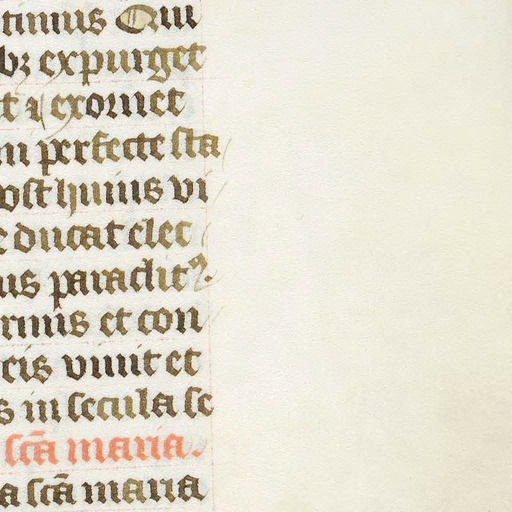 timus Qui
bꝫ expurget
t ⁊ exornet
m perfecte sta
ost huius vi
e ducat elec
us paraclitꝰ.
rmis et con
eis viuit et
s in secula se
sc̄a maria.
a sc̄a maria